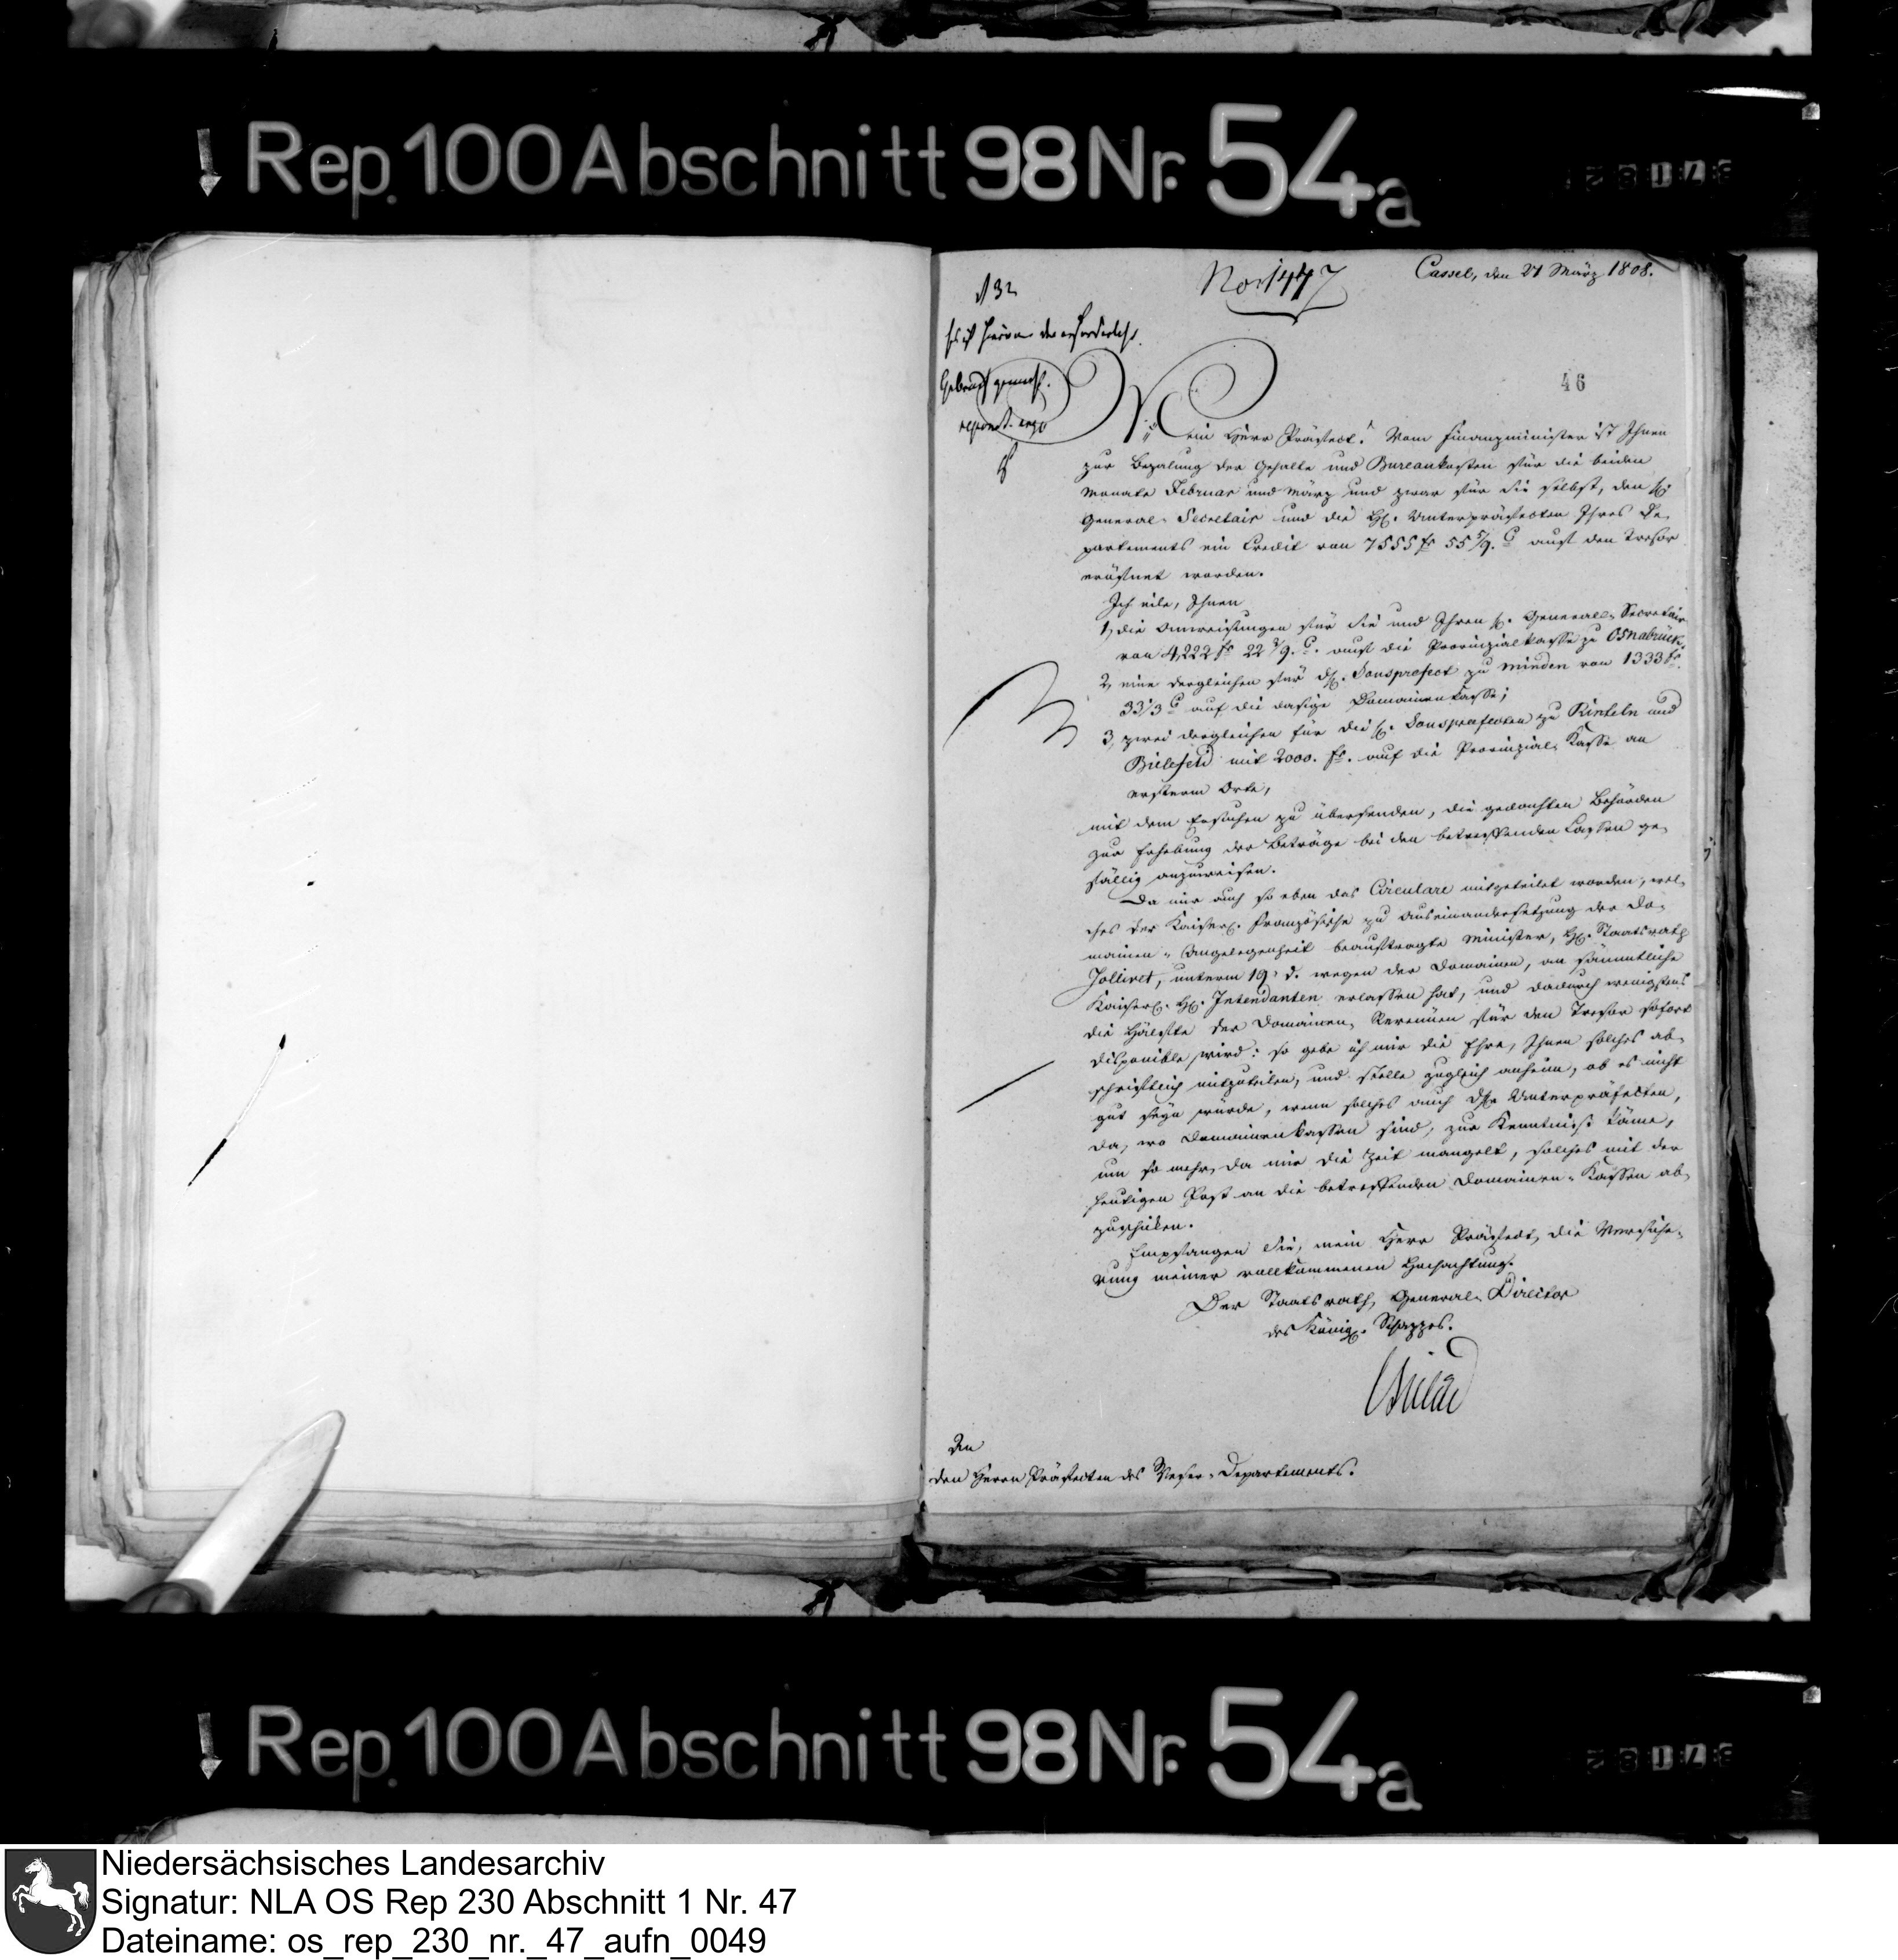 Rep. 100 Abschnitt 98 Nr. 54a
Cassel, den 21 März 1808.
No. 1447
N 32
Es ist hievon der erforderliche
Gebrauch gemacht.
46
Mein Herr Präfect! Vom Finanzminister ist Ihnen
zur Bezalung der Gehalte und Bureaukosten für die beiden
Monate Februar und März und zwar für Sie selbst, den H.
General-Secretair und die HH. Unterpräfecten Ihres De-
partements ein Credit von 7555 fr 55 5/9. C auf den Tresor
eröfnet worden.
Ich eile, Ihnen
1, die Anweisungen für Sie und Ihren H. General-Secretair
von 4,222 fr 22 2/9. C. auf die Provinzialkasse zu Osnabrück,
2, eine dergleichen für dH. Souspraefect zu Minden von 1333 fr.
33 1/3 C auf die dasige Domainenkasse;
3, zwei dergleichen für die H. Souspraefecten zu Rinteln und
Bielefeld mit 2000. fr. auf die Provinzial-Kasse an
ersterm Orte,
mit dem Ersuchen zu übersenden, die gedachten Behörden
zur Erhebung der Beträge bei den betreffenden Cassen ge-
fällig anzuweisen.
Da mir auch so eben das Circulare mitgeteilet worden, wel-
ches der Kaiserl. Französische zu Auseinandersetzung der Do-
mainen-Angelegenheit beauftragte Minister, H. Staatsrath
Jollivet, unterm 19. d. wegen der Domainen, an sämmtliche
Kaiserl. HH. Intendanten erlassen hat, und dadurch wenigstens
die Hälfte der Domainen-Revenüen für den Tresor sofort
disponible wird: so gebe ich mir die Ehre, Ihnen solches ab-
schriftlich mitzuteilen, und stelle zugleich anheim, ob es nicht
gut seyn würde, wenn solches auch dH Unterpräfecten,
da, wo Domainenkassen sind, zur Kenntniss käme,
um so mehr, da mir die Zeit mangelt, solches mit der
heutigen Post an die betreffenden Domainen-Kassen ab-
zuschicken.
Empfangen Sie, mein Herr Präfect, die Versiche-
rung meiner vollkommenen Hochachtung.
Der Staatsrath, General-Director
des Königl. Schazzes.
An
den Herrn Präfecten des Weser-Departements.
Rep. 100 Abschnitt 98 Nr. 54a
Niedersächsisches Landesarchiv
Signatur: NLA OS Rep 230 Abschnitt 1 Nr. 47
Dateiname: os_rep_230_nr._47_aufn_0049